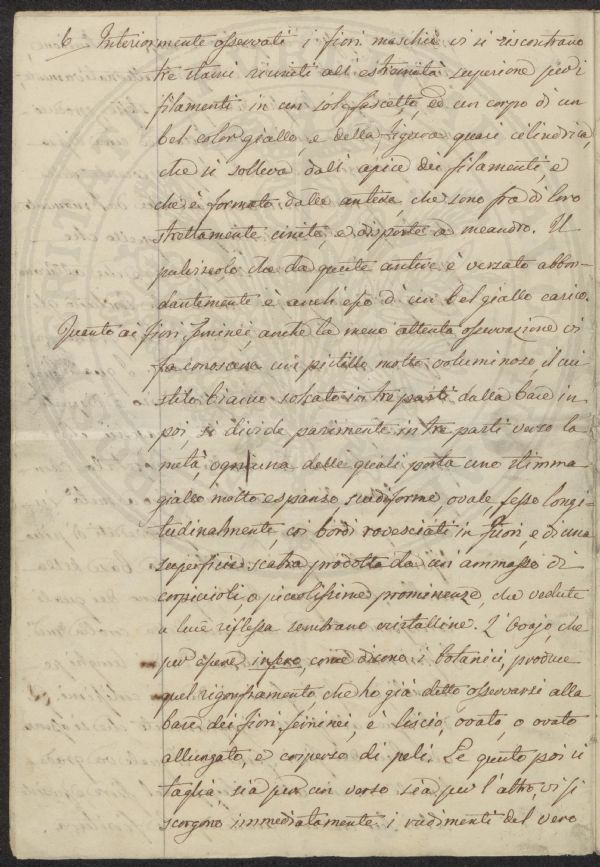 6 Interiormente osservati i fiori maschii vi si riscontrano
tre stami riuniti all'estremità superiore pei
filamenti in un sol fascetto, ed un corpo di un
bel color giallo, e della figura quasi cilindrica,
che si solleva dall'apice dei filamenti, e
che è formato dalle antere, che sono fra di loro
strettamente unite, e disposte a meandro. Il
pulviscolo, che da queste antere è versato abbon-
dantemente è anch'esso d'un bel giallo carico.
Quanto ai fiori feminei, anche la meno attenta osservazione vi
fa conoscere un pistillo molto voluminoso il cui
stilo biancho solcato in tre parti dalla base in
poi, si divide parimente in tre parti verso la
metà, ogniuna delle quali porta uno stimma
giallo molto espanso, cuoriforme, ovale, fesso longi-
tudinalmente, coi bordi rovesciati in fuori, e di una
superficie scabra prodotta da un ammasso di
corpiccioli, o piccolissime prominenze, che vedute
a luce riflessa sembrano cristalline. L'ovajo, che
per essere infero, come dicono i botanici, produce
quel rigonfiamento, che ho già detto osservarsi alla
base dei fiori feminei, è liscio, ovato, o ovato
allungato, e cosperso di peli. Se questo poi si
taglia sia per un verso sia per l'altro, vi si
scorgono immediatamente i rudimenti del vero